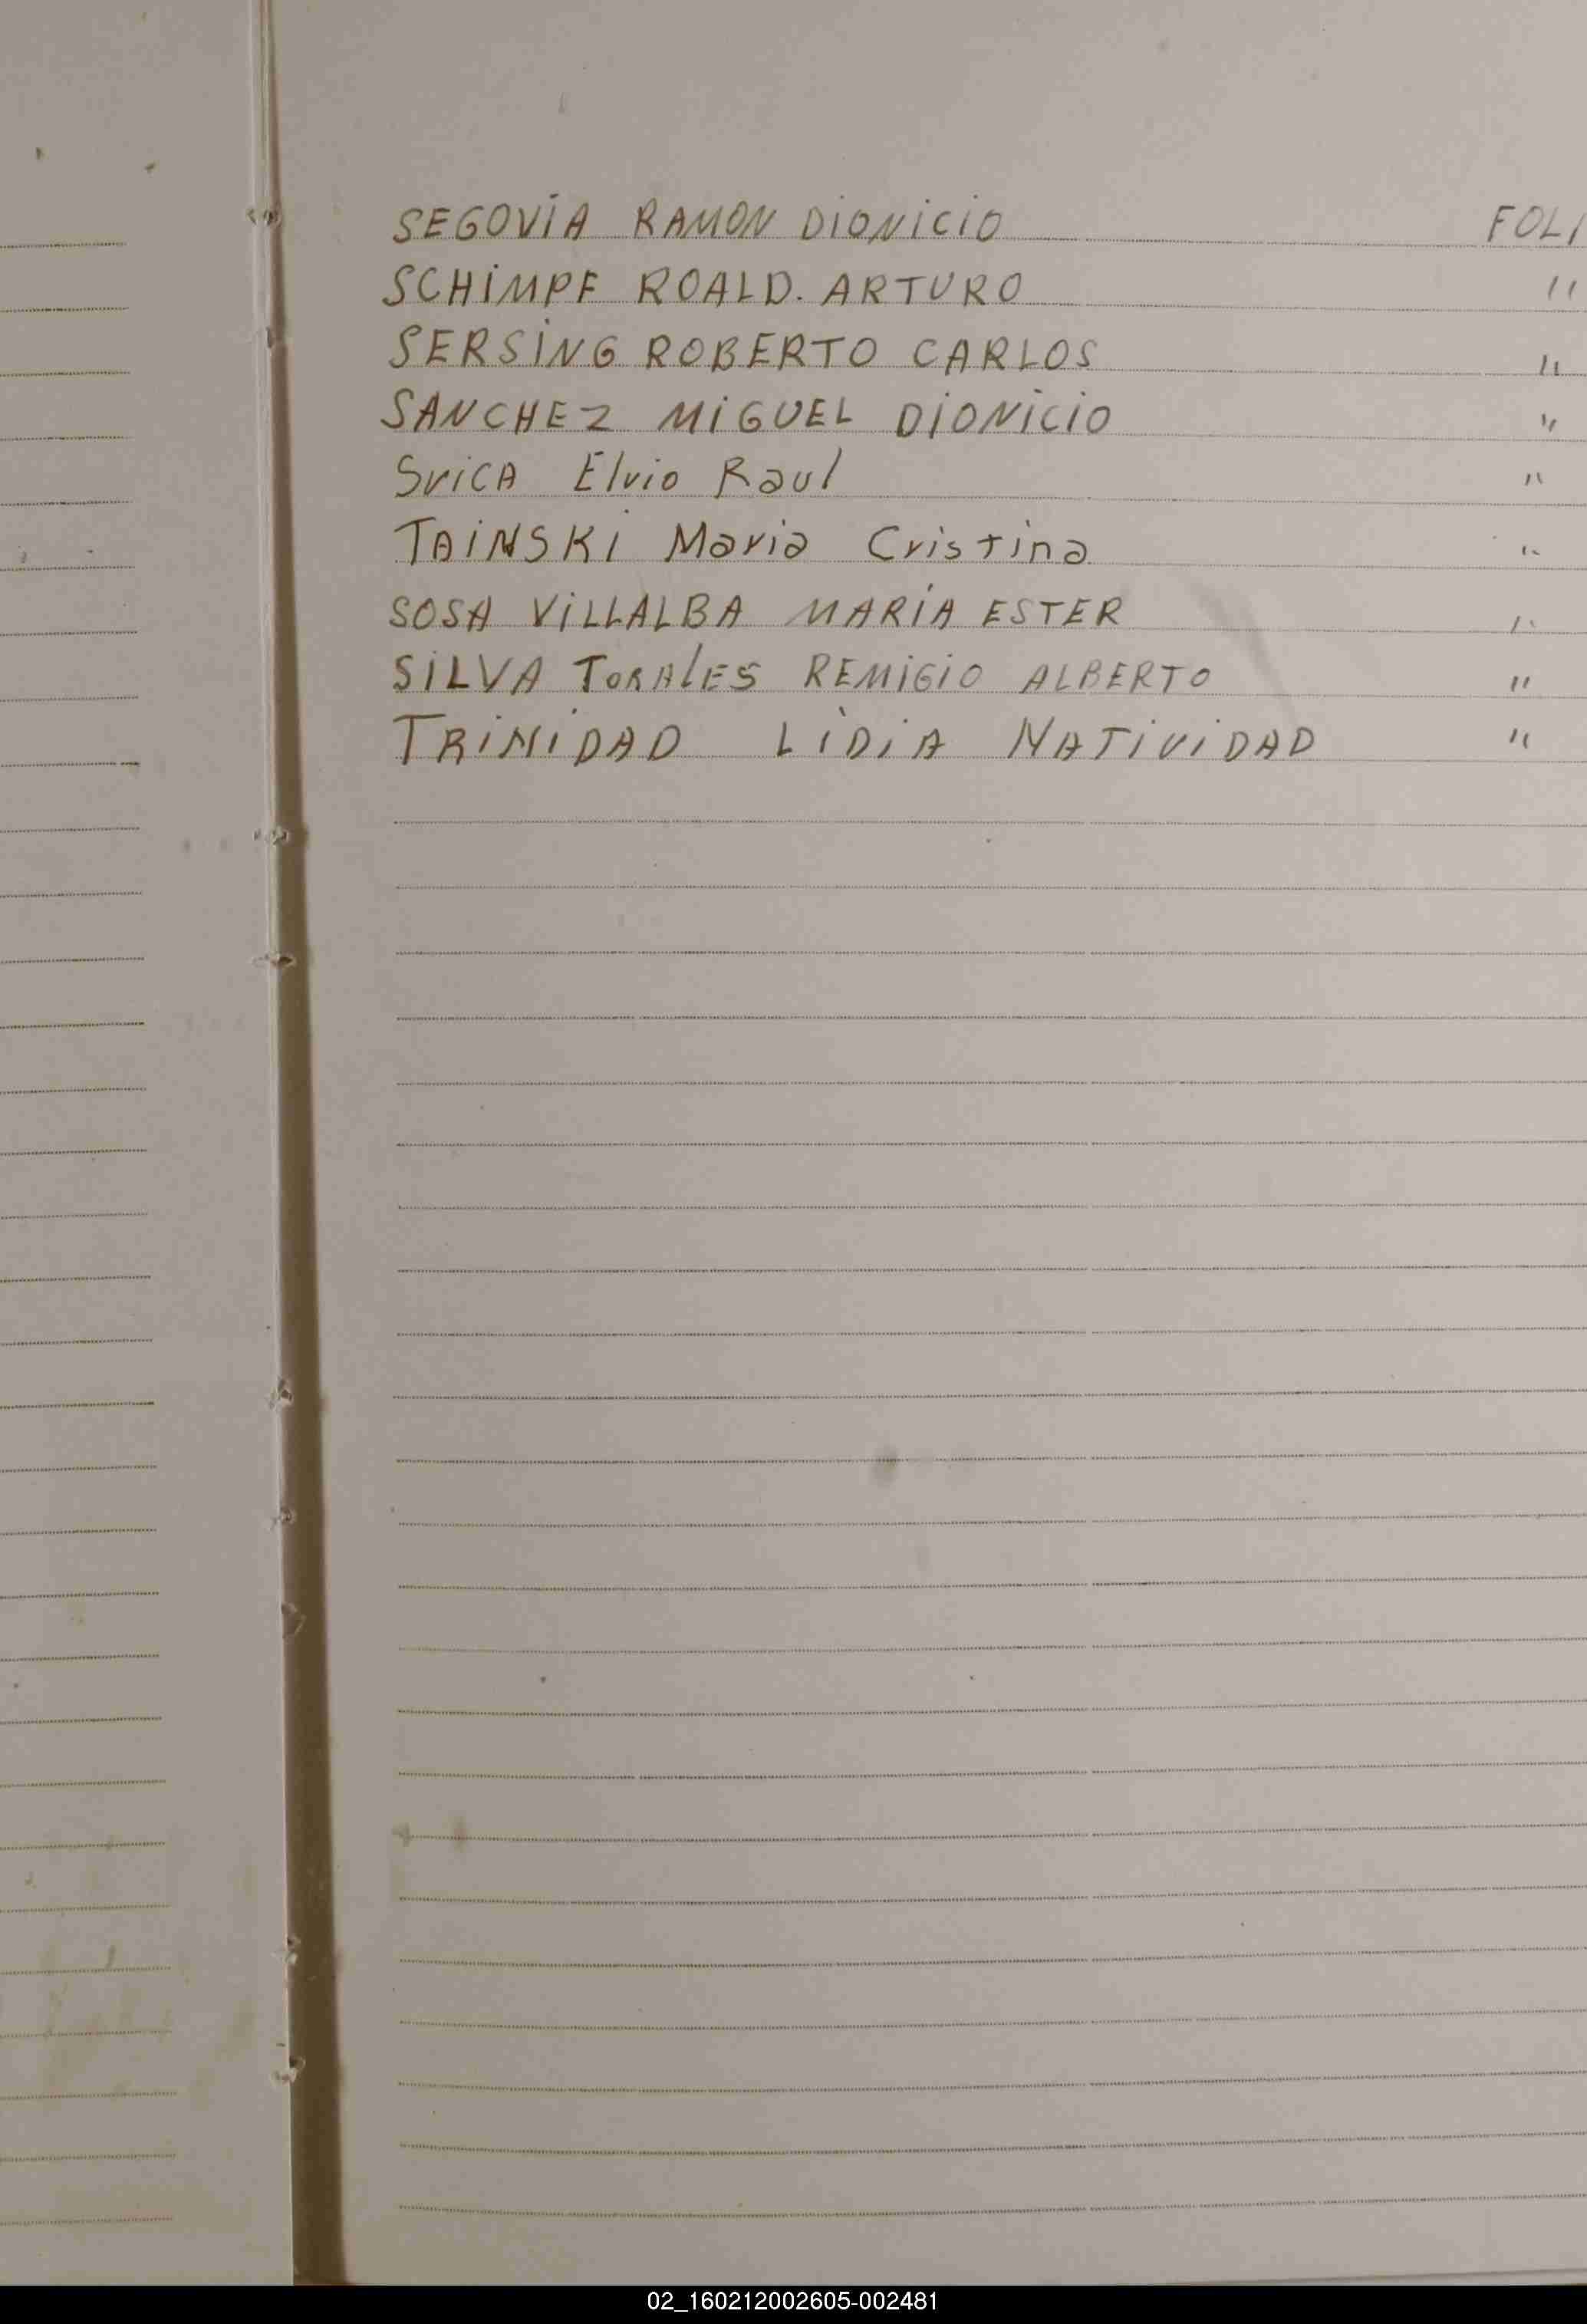 SEGOVIA RAMON DIONICIO FOLI
SCHIMPF ROALD. ARTURO "
SERSING ROBERTO CARLOS "
SANCHEZ MIGUEL DIONICIO "
SVICA Elvio Raul "
TAINSKI Maria Cristina "
SOSA VILLALBA MARÍA ESTER "
SILVA TORALES REMIGIO ALBERTO "
TRINIDAD LIDIA NATIVIDAD "
02_160212002605-002481